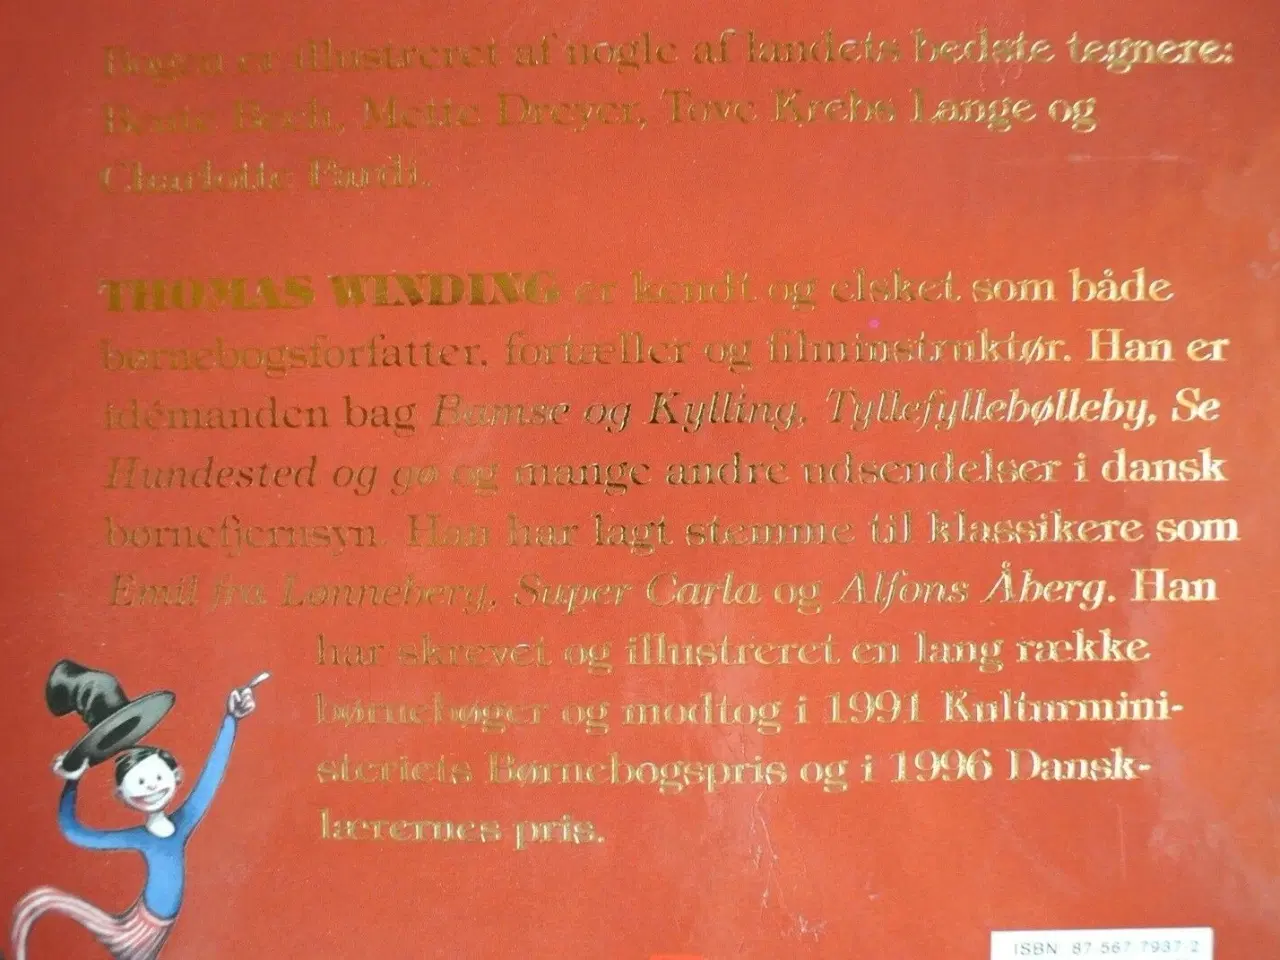 Bogen er illustreret af nogle af landets bedste tegnere:
Bente Bech, Mette Dreyer, Tove Krebs Lange og
Charlotte Pardi.
THOMAS WINDING er kendt og elsket som både
børnebogsforfatter, fortæller og filminstruktør. Han er
idémanden bag Bamse og Kylling, Tyllefyllebølleby, Se
Hundested og gø og mange andre udsendelser i dansk
børnefjernsyn. Han har lagt stemme til klassikere som
Emil fra Lønneberg, Super Carla og Alfons Åberg. Han
har skrevet og illustreret en lang række
børnebøger og modtog i 1991 Kulturmini-
steriets Børnebogspris og i 1996 Dansk-
lærernes pris.
ISBN 87-567-7937-2